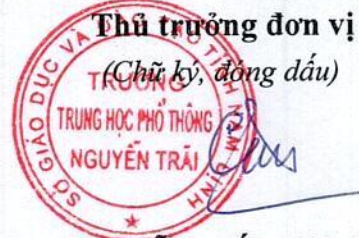 Thủ trưởng đơn vị
(Chữ ký, đóng dấu)
SỞ GIÁO DỤC VÀ ĐÀO TẠO TỈNH NAM ĐỊNH
TRƯỜNG
TRUNG HỌC PHỔ THÔNG
NGUYỄN TRÃI